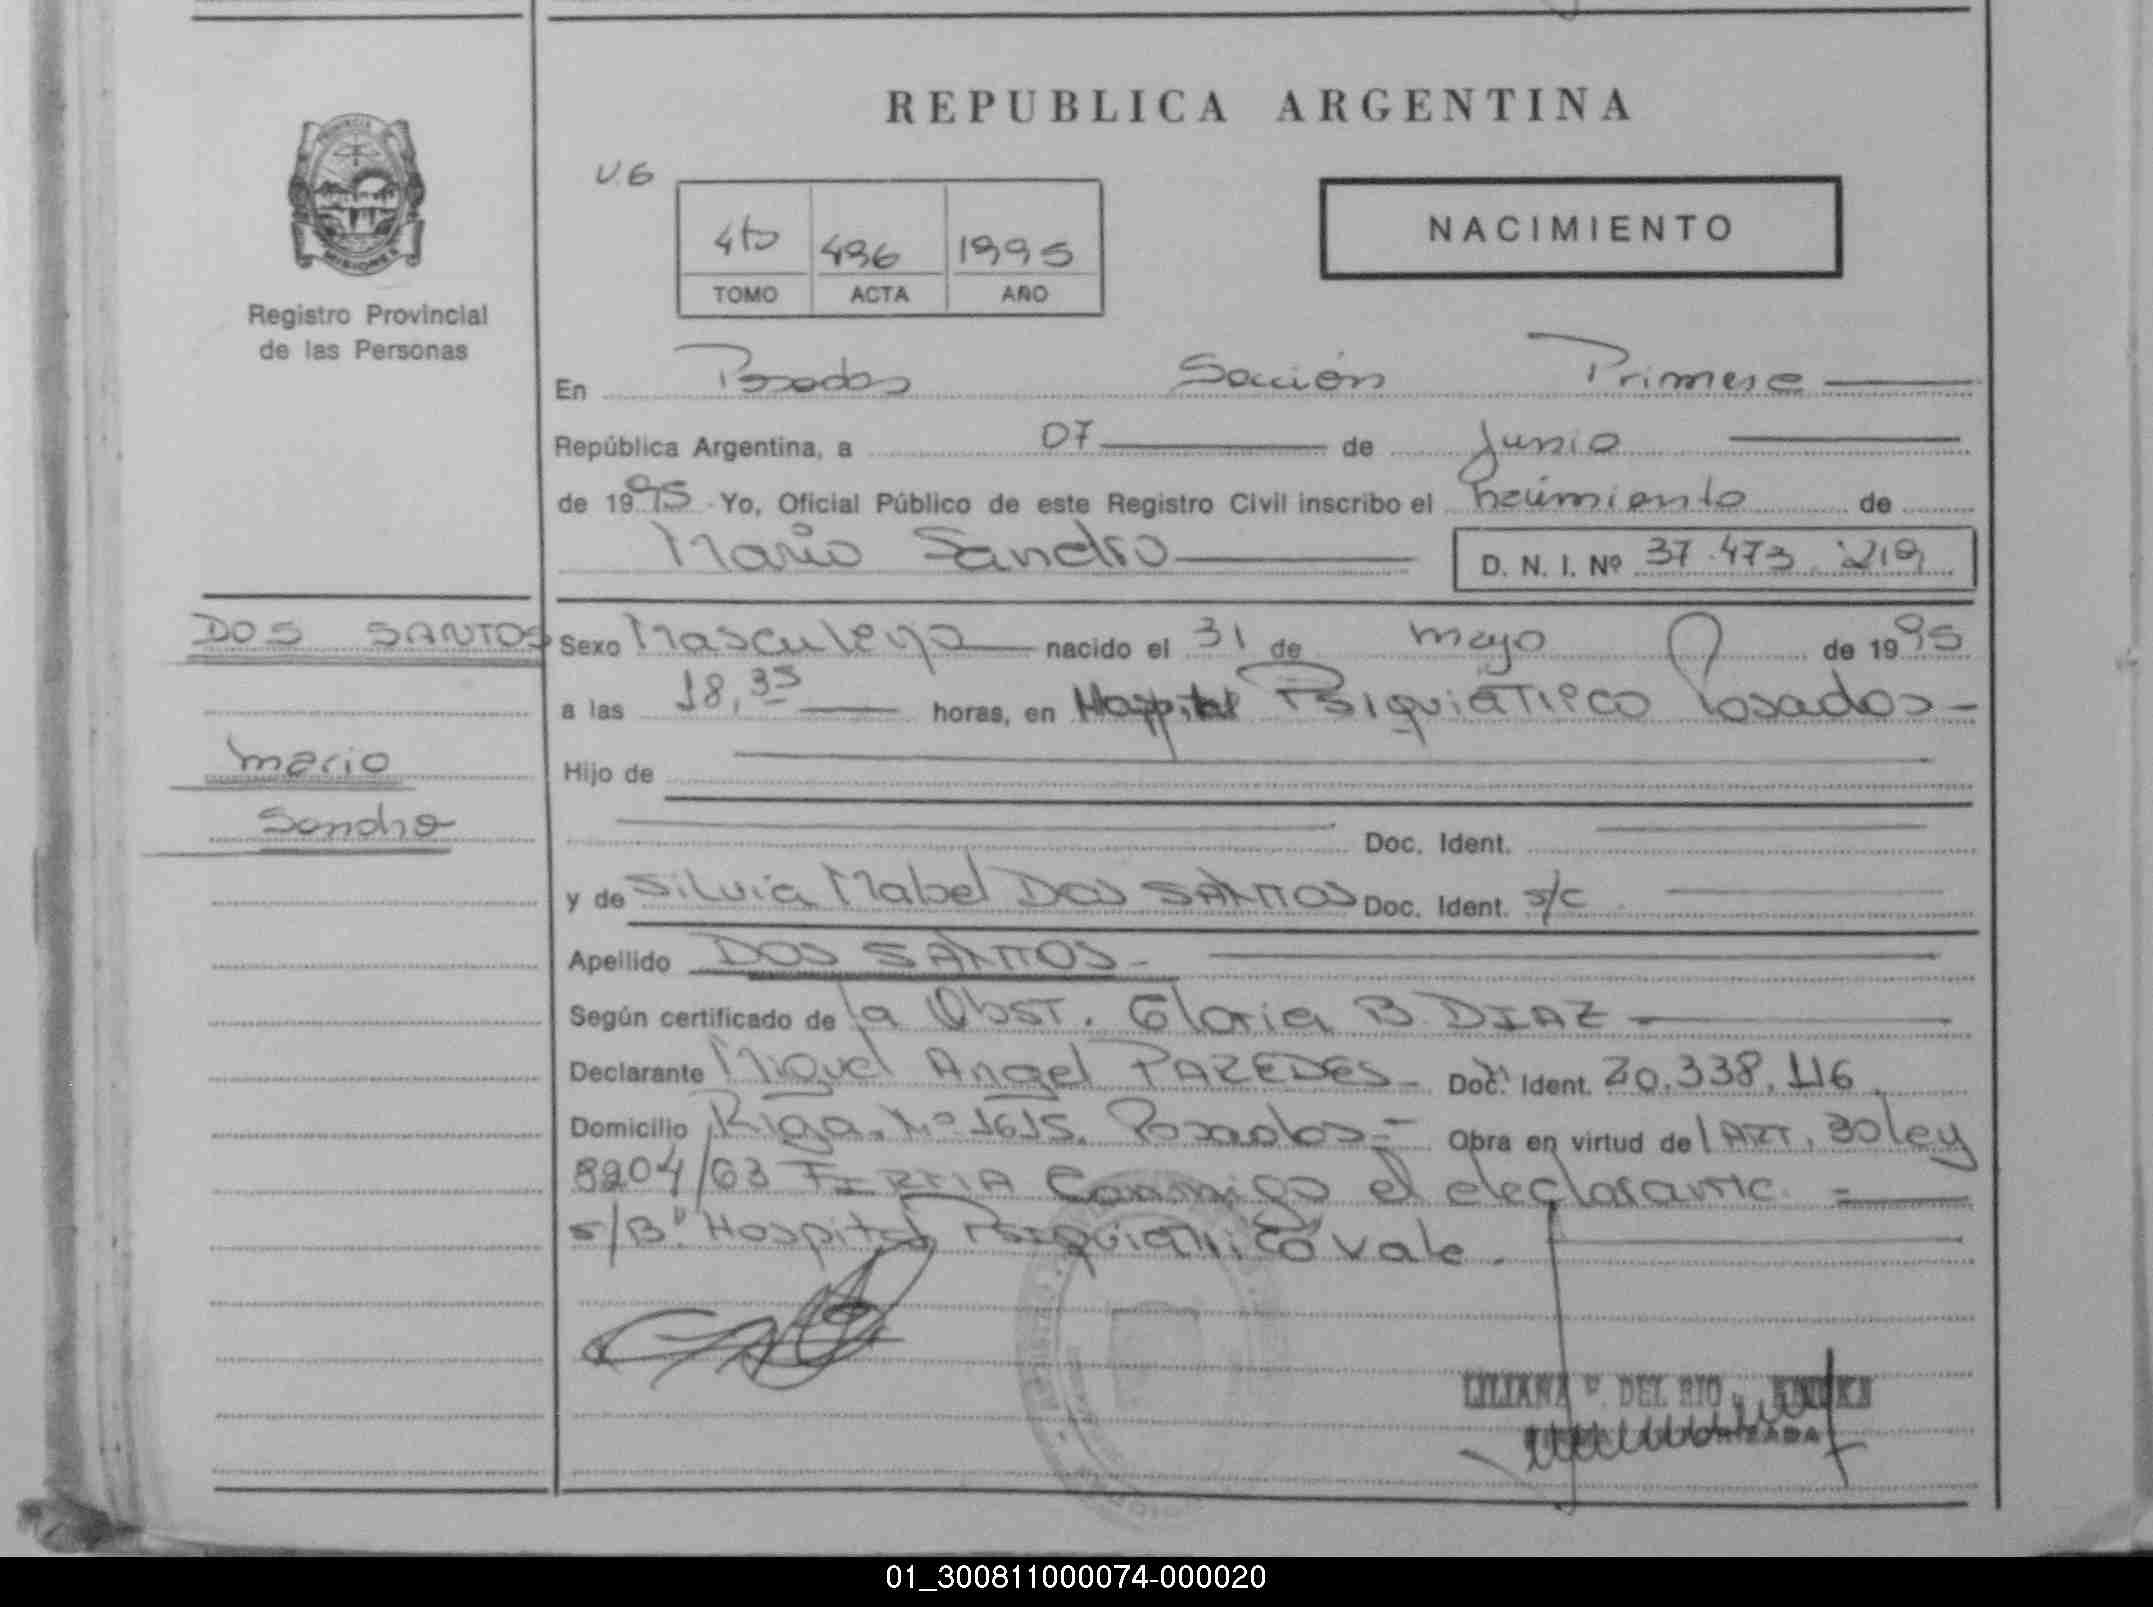 REPUBLICA ARGENTINA
PROVINCIA DE
MISIONES
Registro Provincial
de las Personas
V.6
4to 496 1995
TOMO ACTA AÑO
NACIMIENTO
En Posadas Sección Primera
República Argentina, a 07 de Junio
de 1995 Yo, Oficial Público de este Registro Civil inscribo el nacimiento de
Mario Sandro D. N. I. Nº 37.473.219
DOS SANTOS
Mario
Sandro
Sexo Masculino nacido el 31 de mayo de 1995
a las 18,35 horas, en Hospital Psiquiátrico Posadas-
Hijo de
Doc. Ident.
y de Silvia Mabel DOS SANTOS Doc. Ident. s/c
Apellido DOS SANTOS-
Según certificado de la Obst. Gloria B. DIAZ
Declarante Miguel Angel PAREDES- Doc. Ident. 20.338.116.
Domicilio Riga. Nº 1615. Posados.- Obra en virtud del ART. 30 ley
8204/63 FIRMA Conmigo el declarante
s/B" Hospital Psiquiatrico vale.
LILIANA DEL RIO
01_300811000074-000020